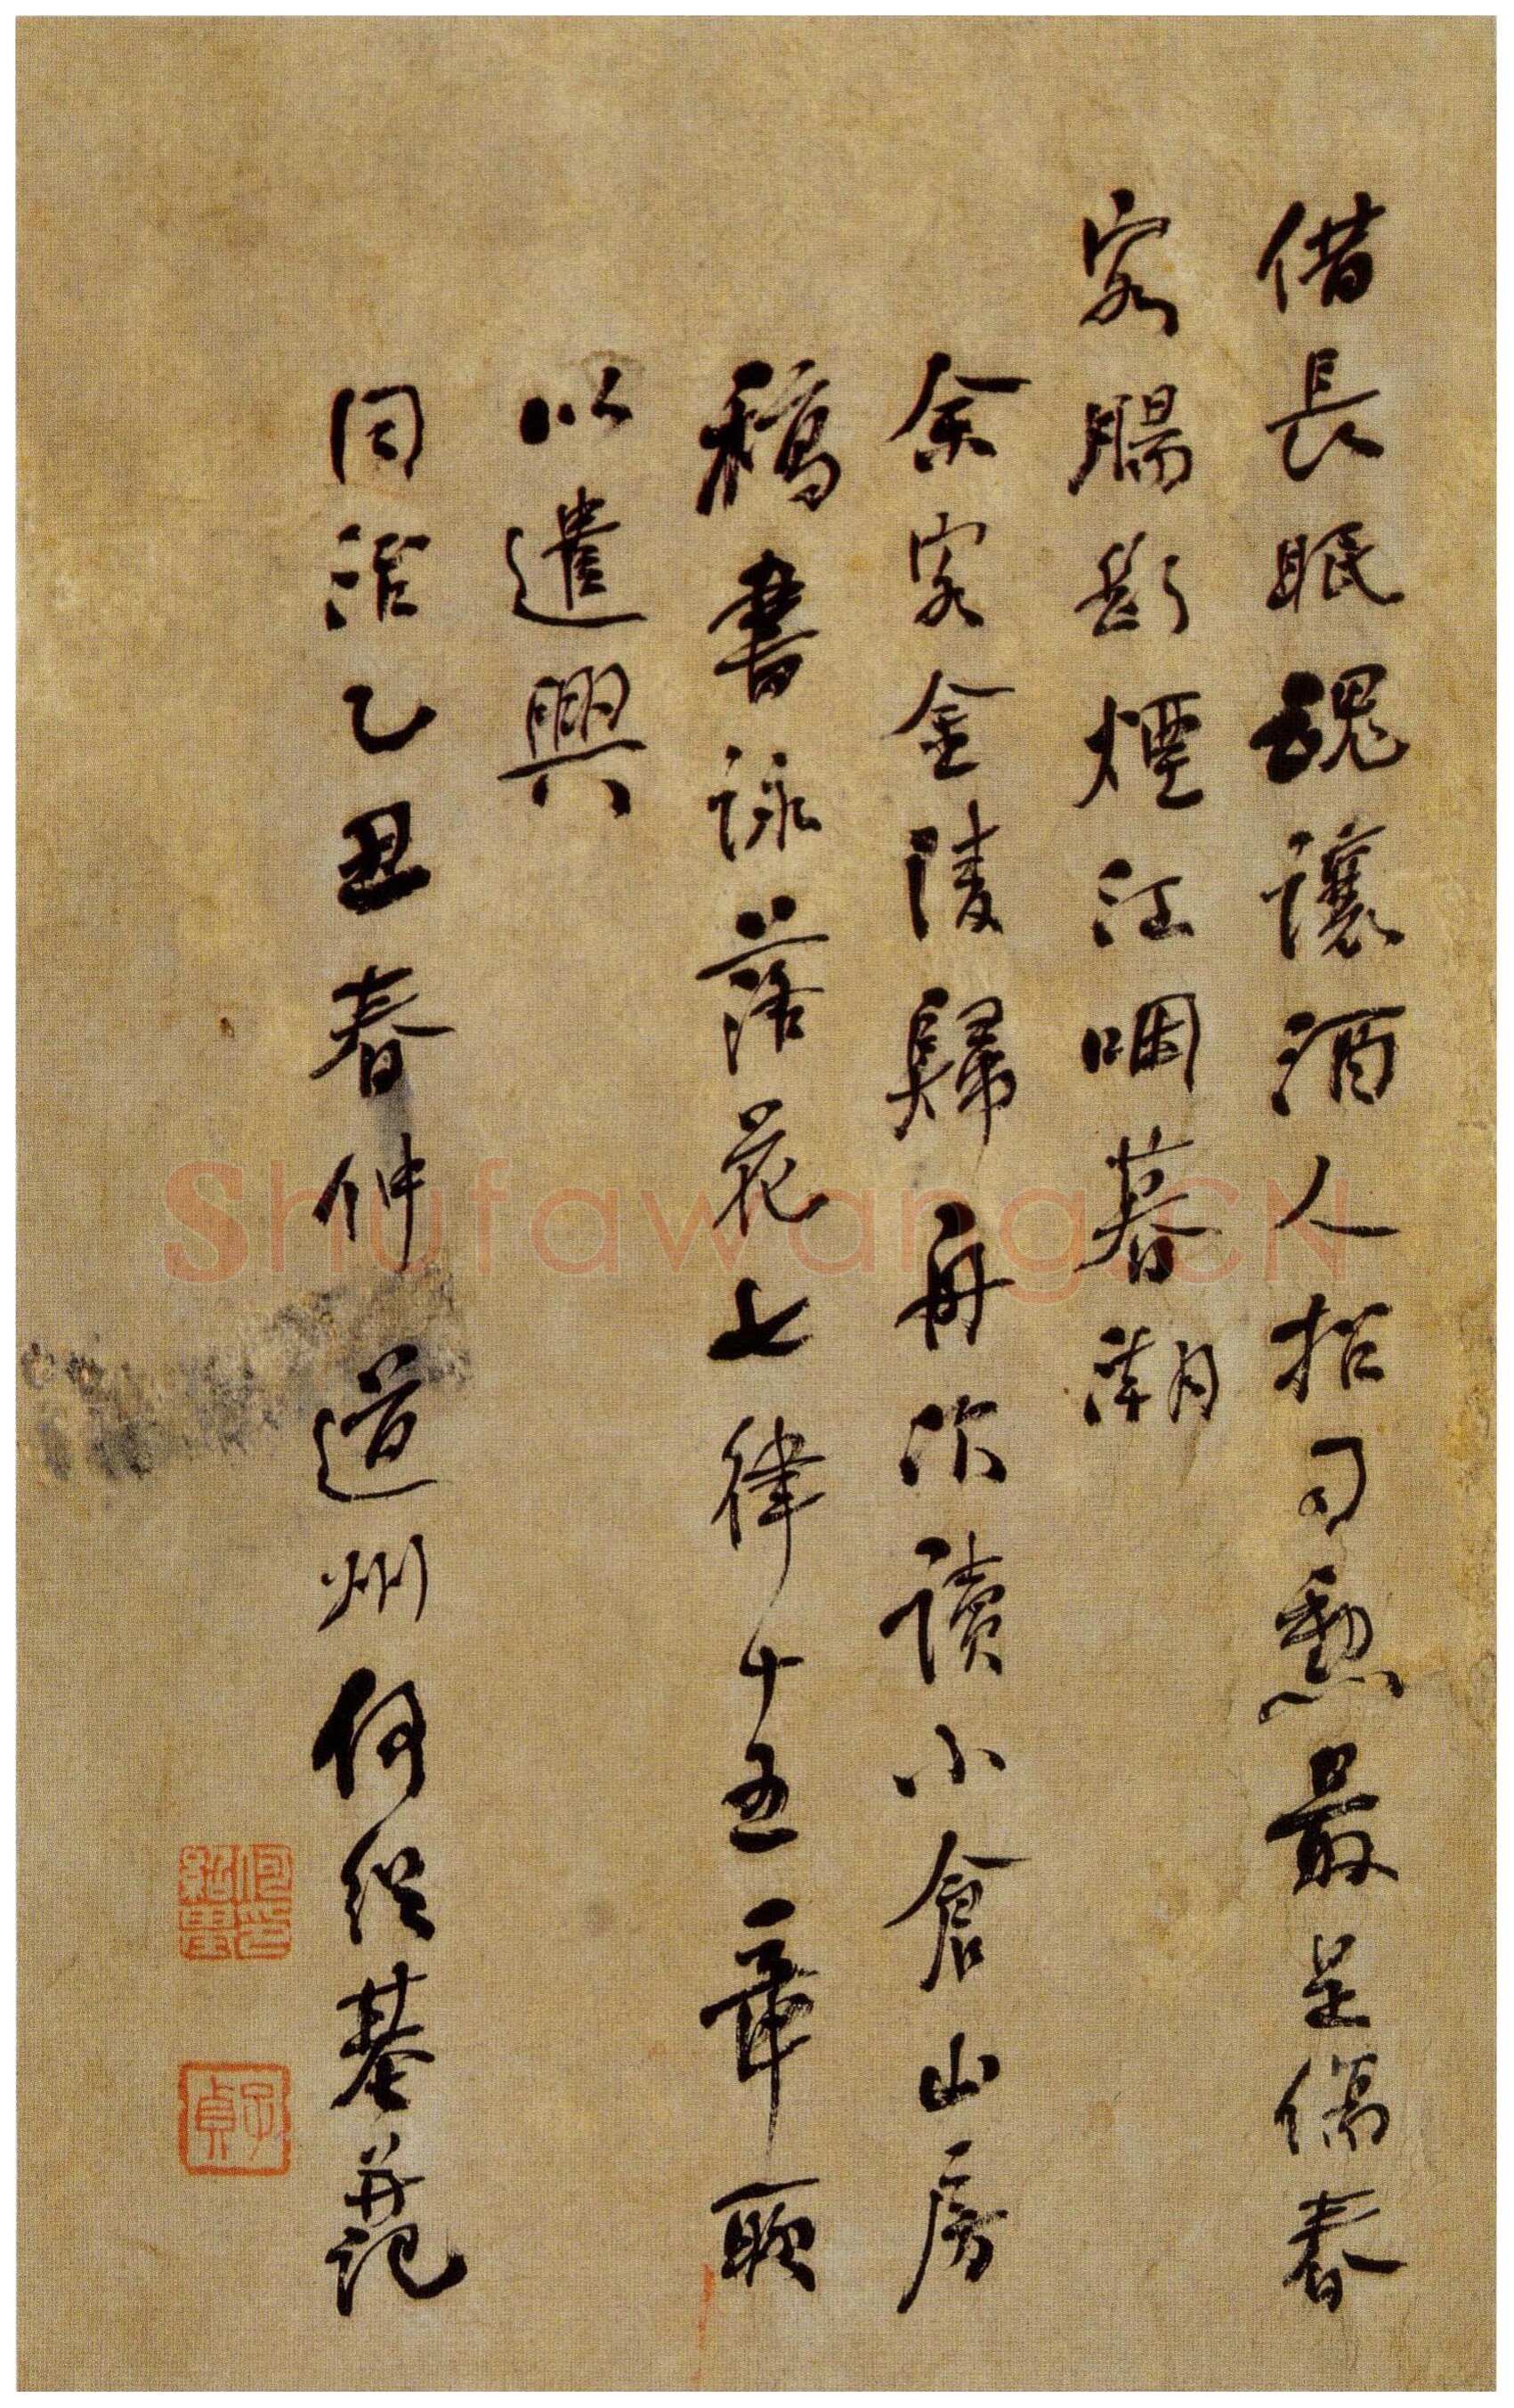 借長眠魂讓酒人招司勳最是傷春
客腸斷煙江咽暮潮
余客金陵歸舟次讀小倉山房
稿書詠落花七律十五章聊
以遣興
同治乙丑春仲道州何紹基并記
何紹基印
子貞
Shufawang.CN